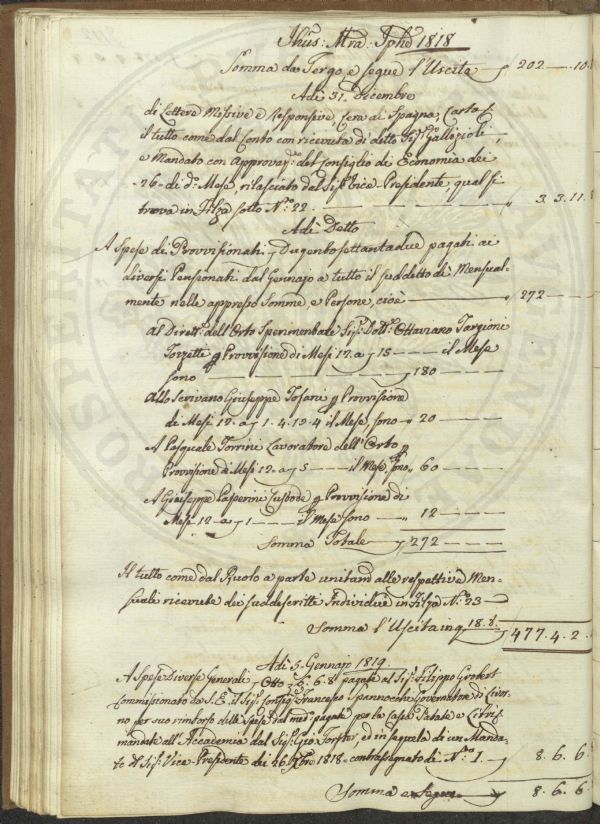 Jhus: Mra: Jphe 1818
Somma da Tergo, e segue l'Uscita 202 — 10
Adi 31. Dicembre
di Lettere Missive e Responsive, Cera di Spagna, Carta
il tutto come dal Conto con ricevuta di detto Sig.r Gallizioli
e Mandato con Approvaz.e del Consiglio di Economia dei
26 — di d.o Mese, rilasciato dal Sig.r Vice Presidente, qual si
trova in Filza sotto N.o 22. 3. 3. 11.
Adi Detto
A Spese di Provvisionati Dugentosettantadue pagati ai
diversi Pensionati dal Gennajo a tutto il suddetto dì Mensual-
mente nelle appresso Somme, e Persone, cioè 272 —
Al Dirett.e dell'Orto Sperimentale Sig.r Dott.r Ottaviano Targioni
Tozzetti p Provvisione di Mesi 12. a 15 — il Mese
sono 180 —
Allo Scrivano Giuseppe Tofani p Provvisione
di Mesi 12. a 1. 4. 13. 4 il Mese, sono 20 —
A Pasquale Torrini Lavoratore dell'Orto p
Provvisione di Mesi 12. a 5 — il Mese, sono 60 —
A Giuseppe Paperini Custode p Provvisione di
Mesi 12 a 1 — il Mese sono 12 —
Somma Totale 272 —
Il tutto come dal Ruolo a parte unitam.e alle respettive Men-
suali ricevute dei suddescritti Individui in Filza N.o 23
Somma l'Uscita in 18.8. 477. 4. 2.
Adi 5. Gennajo 1819
A Spese Diverse Generali Otto 6. 6. 8 pagate al Sig.r Filippo
Commissionato da S. E. il Sig.r Consig.r Francesco Spannocchi Governatore di Livor-
no per suo rimborso delle Spese dal med.o pagate per la Cassa Patate e
mandate all'Accademia dal Sig.r Gio. Forster, ed in sequela di un Manda-
to del Sig.r Vice-Presidente dei 26. Xbre 1818 — contrassegnato di N.ro 1. 8. 6. 6
Somma e segue 8. 6. 6